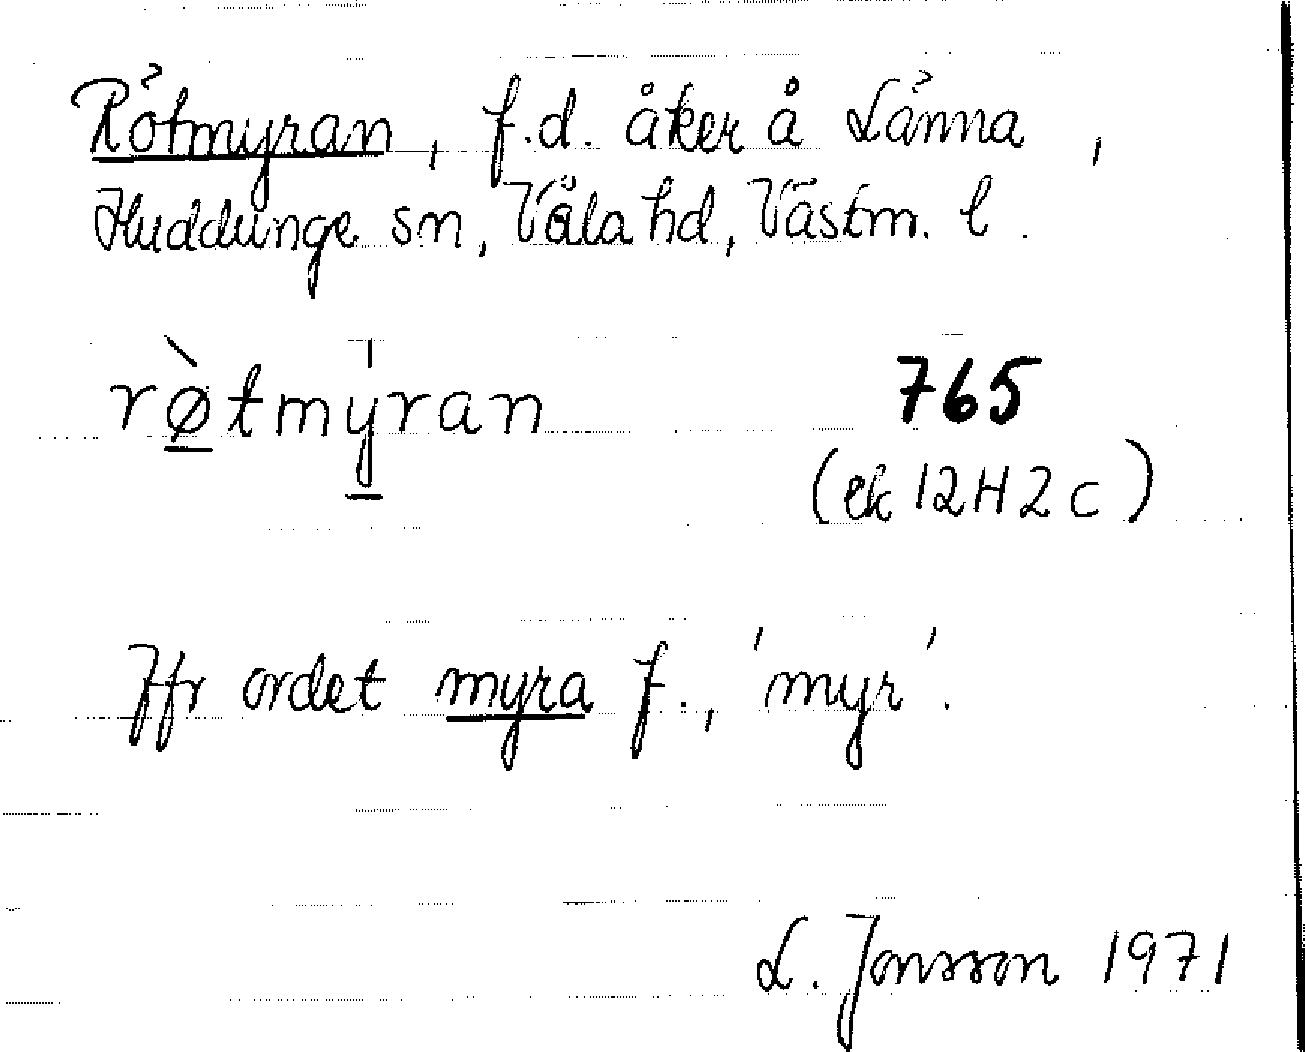 Rötmyran, f.d. åker å Länna,
Huddunge sn, Våla hd, Västm. l.
rø̀tmy̍ran
765
(ek 12H2c)
Jfr ordet myra f., 'myr'.
L. Jonsson 1971